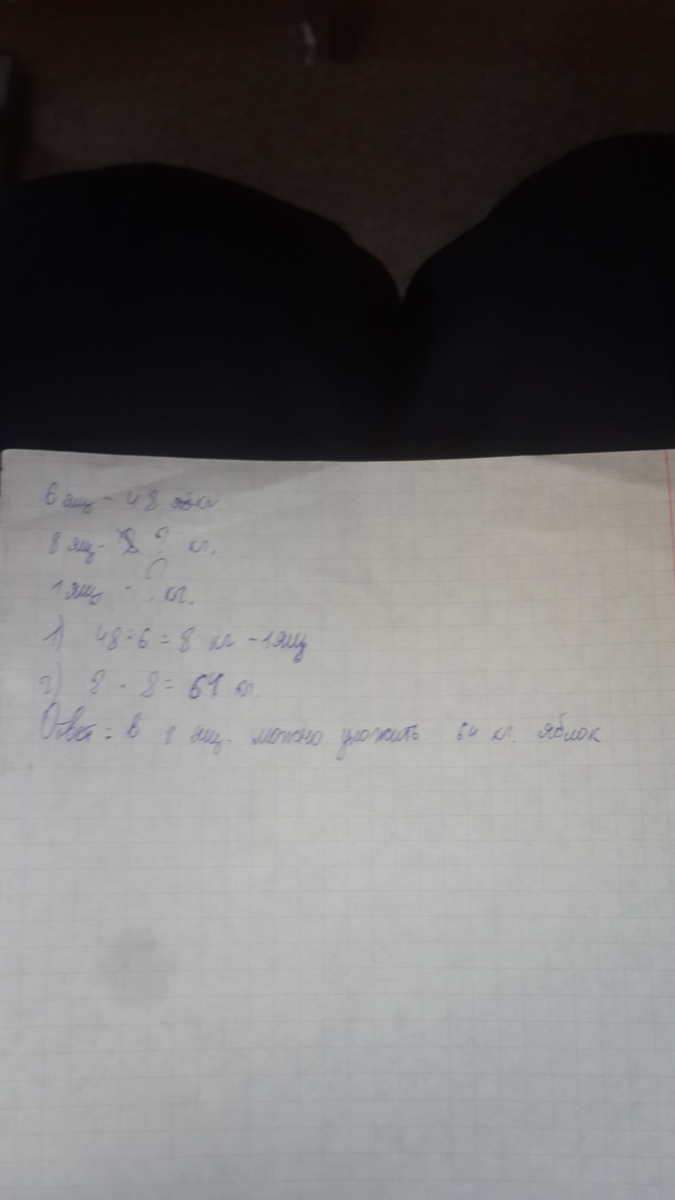 6 ящ - 48 кг
8 ящ - ? кг.
1 ящ - ? кг.
1) 48:6=8 кг - 1 ящ
2) 8 · 8 = 64 кг.
Ответ: в 8 ящ. можно уложить 64 кг. яблок